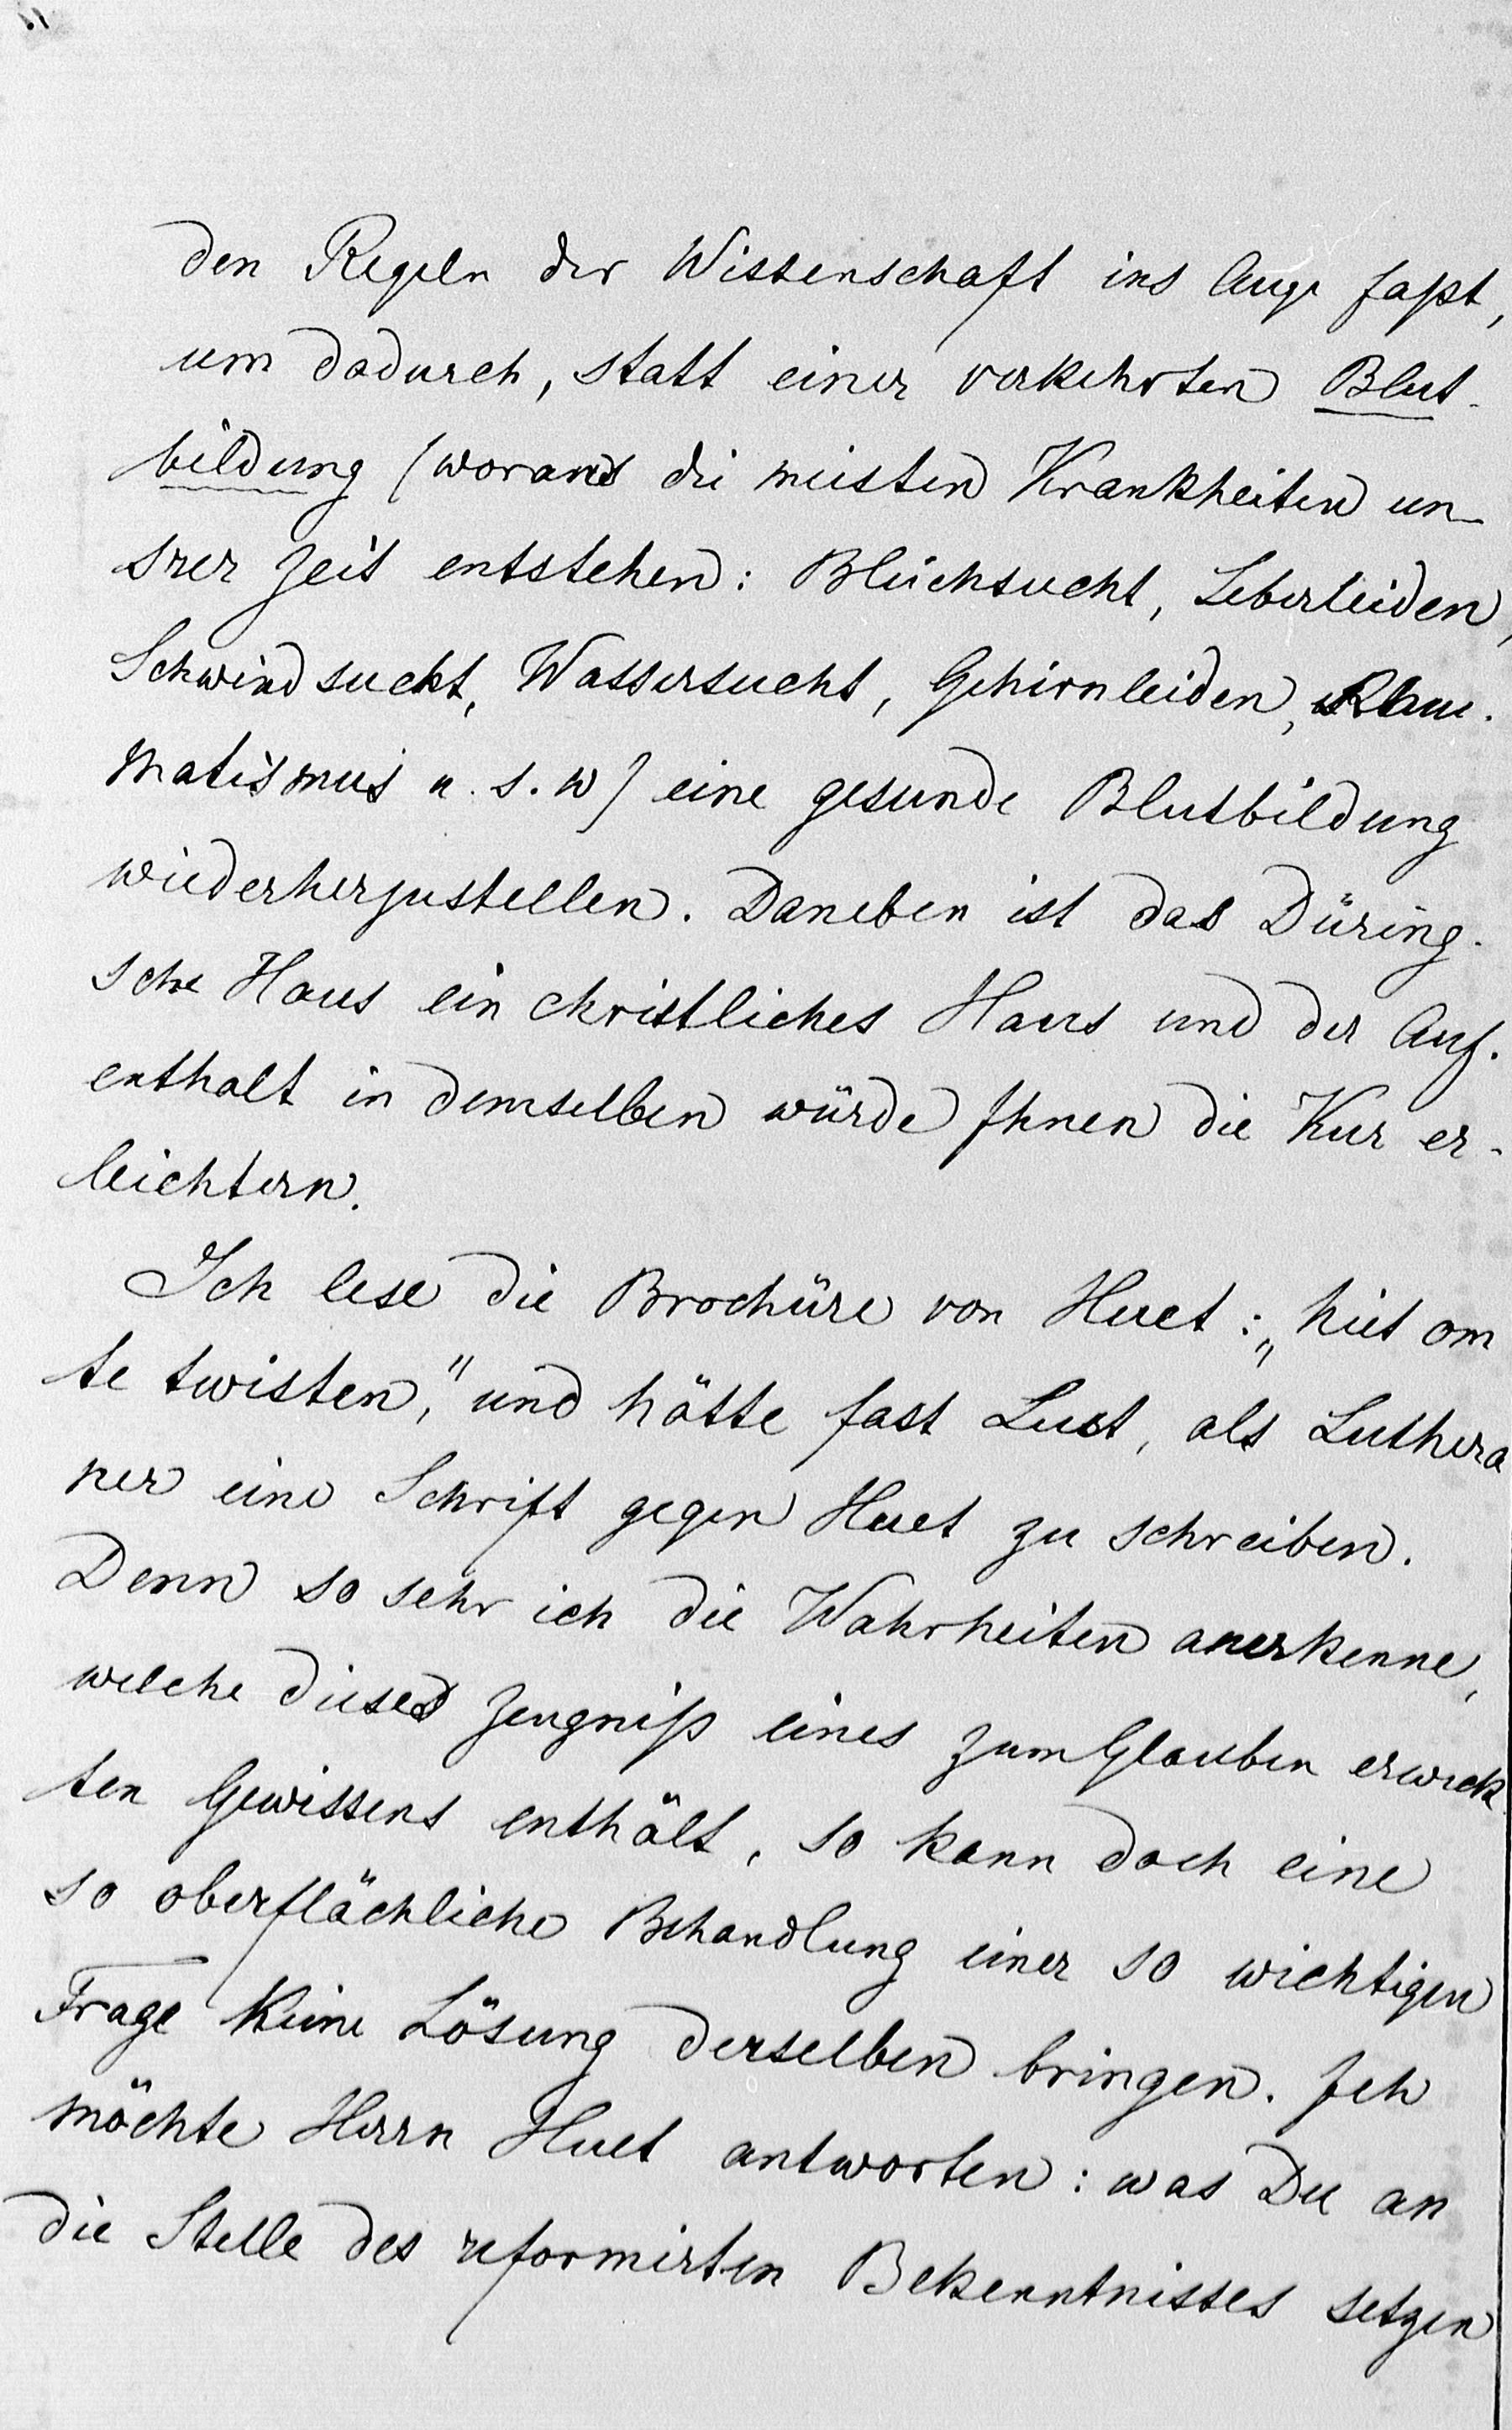 den Regeln der Wissenschaft ins Auge faßt,
um dadurch, statt einer verkehrten Blut-
bildung (woraus die meisten Krankheiten un-
srer Zeit entstehen: Bleichsucht, Leberleiden,
Schwindsucht, Wassersucht, Gehirnleiden, Rheu-
matismus u. s. w) eine gesunde Blutbildung
wiederherzustellen. Daneben ist das Düring-
sche Haus ein christliches Haus und der Auf-
enthalt in demselben würde Ihnen die Kur er-
leichtern.
Ich lese die Brochüre von Huet: „niet om
te twisten," und hätte fast Lust, als Luthera
ner eine Schrift gegen Huet zu schreiben.
Denn so sehr ich die Wahrheiten anerkenne,
welche dieses Zeugniß eines zum Glauben erweck
ten Gewissens enthält, so kann doch eine
so oberflächliche Behandlung einer so wichtigen
Frage keine Lösung derselben bringen. Ich
möchte Herrn Huet antworten: was Du an
die Stelle des reformirten Bekenntnisses setzen